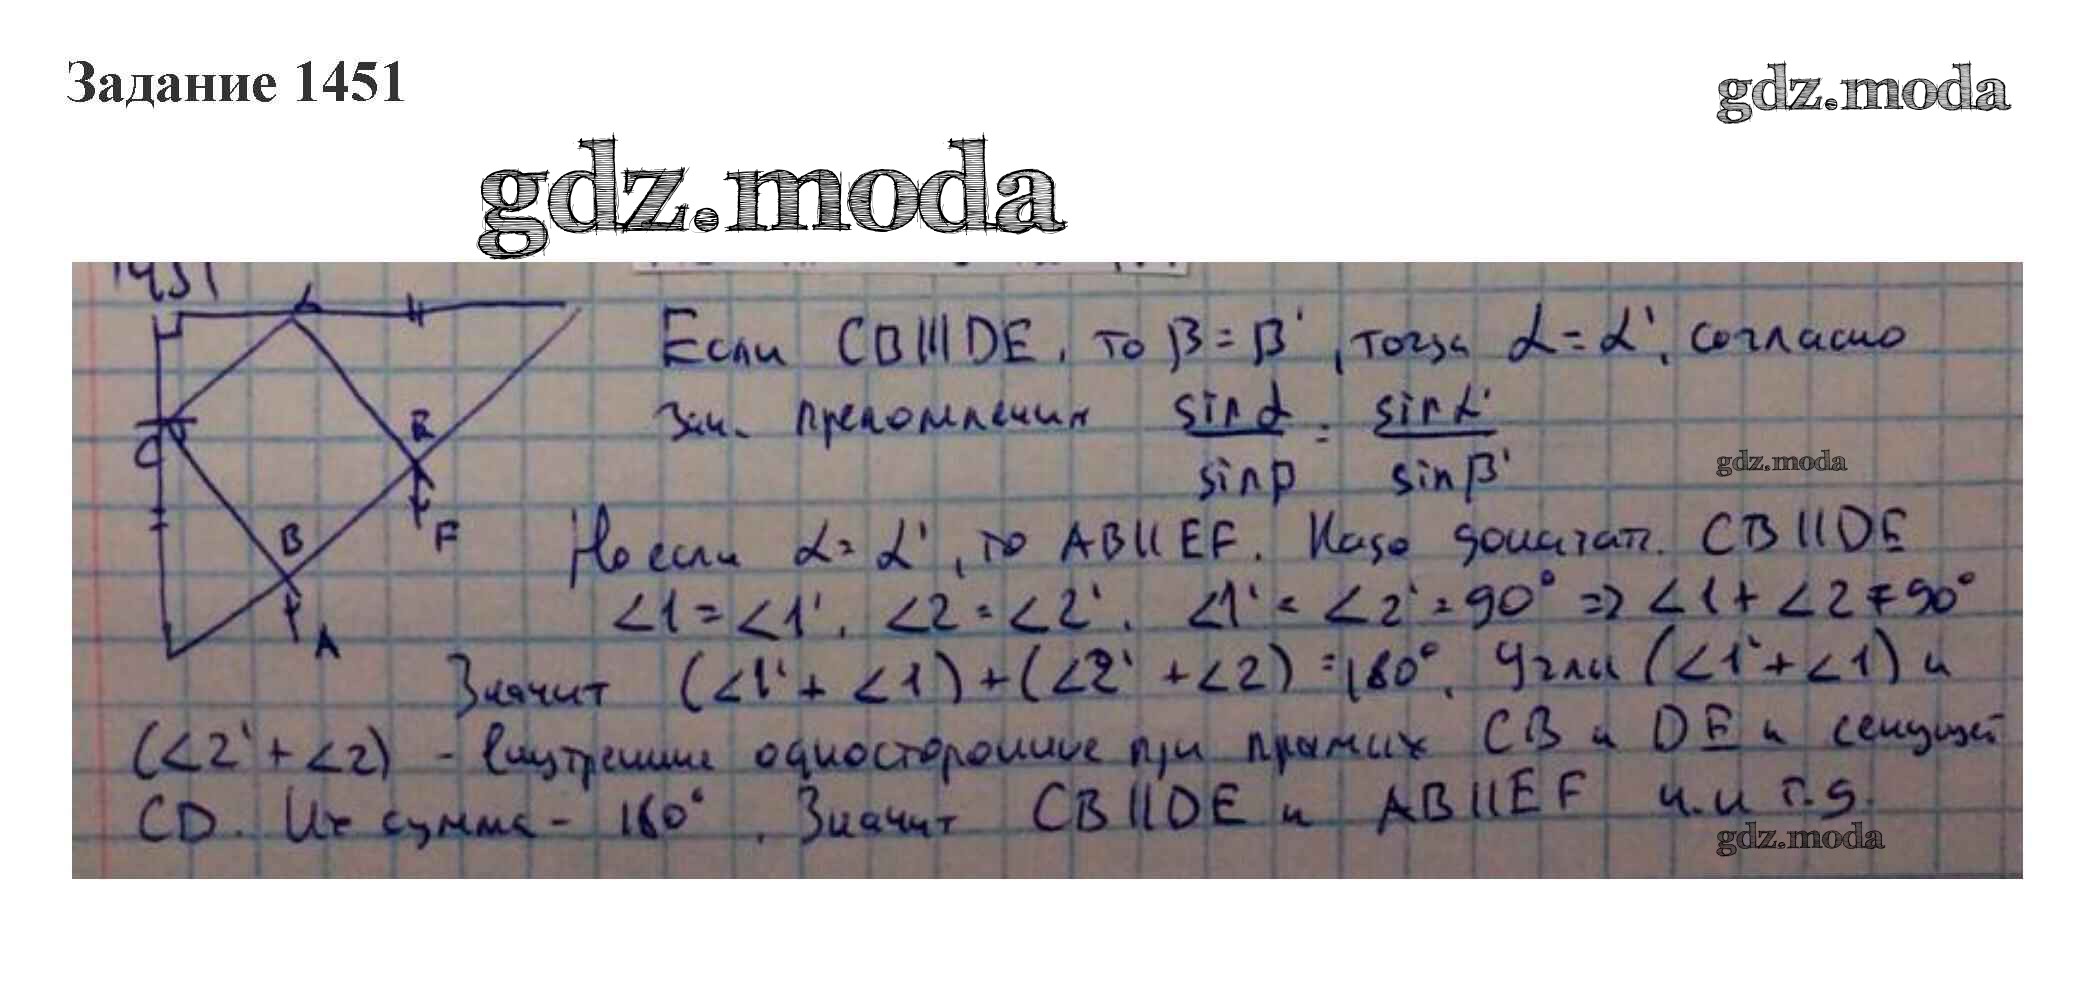 Задание 1451
gdz.moda
gdz.moda
1451
Если CB||DE, то β = β', тогда α = α', согласно
зак. преломления sinα/sinβ = sinα'/sinβ'
gdz.moda
Но если α = α', то AB||EF. Надо доказат. CB||DE
∠1 = ∠1'. ∠2 = ∠2'. ∠1' + ∠2' = 90° => ∠1 + ∠2 = 90°
Значит (∠1' + ∠1) + (∠2' + ∠2) = 180°. Углы (∠1' + ∠1) и
(∠2' + ∠2) - внутренние односторонние при прямых CB и DE и секущей
CD. Их сумма - 180°. Значит CB||DE и AB||EF ч.и т.д.
gdz.moda
C
B
A
E
F